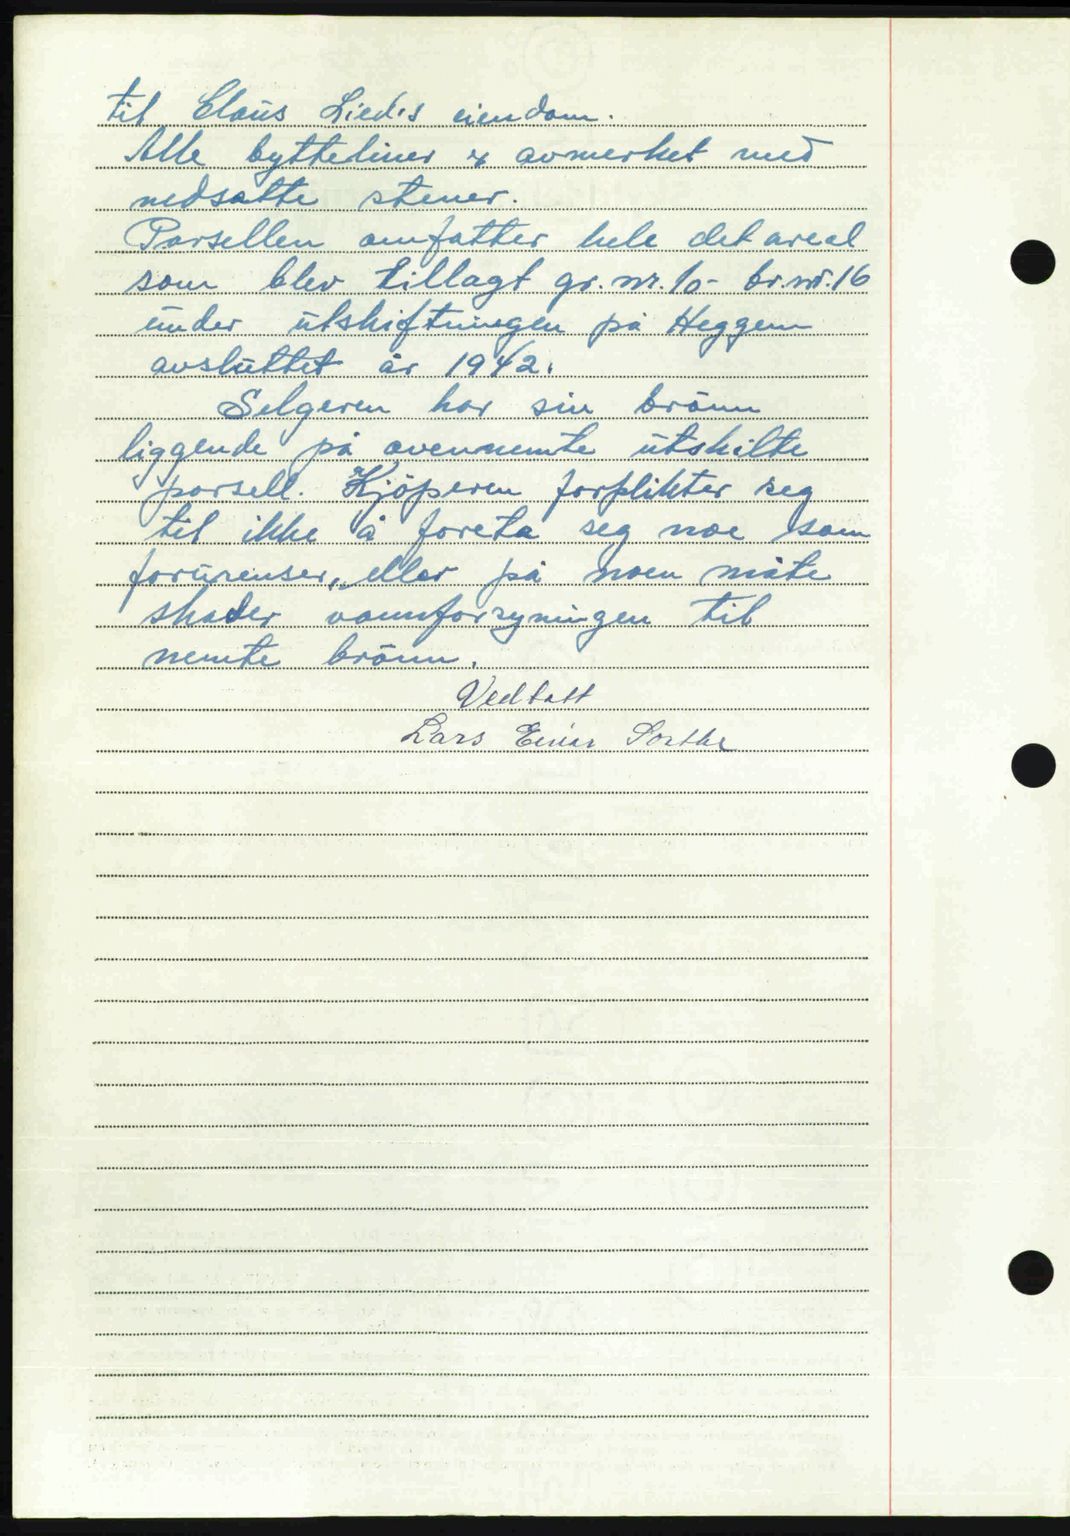 til Claus Lied's eiendom.
Alle bytteliner er avmerket med
nedsatte stener.
Parsellen omfatter hele det areal
som blev tillagt gr. nr. 10 - br. nr. 16
under utskiftningen på Heggem
avsluttet år 1942.
Selgeren har sin brönn
liggende på ovennemte utskilte
parsell. Kjöperen forplikter seg
til ikke å foreta seg noe som
forurenser, eller på noen måte
skader vannforsyningen til
nemte brönn.
Vedtatt
Lars Einar